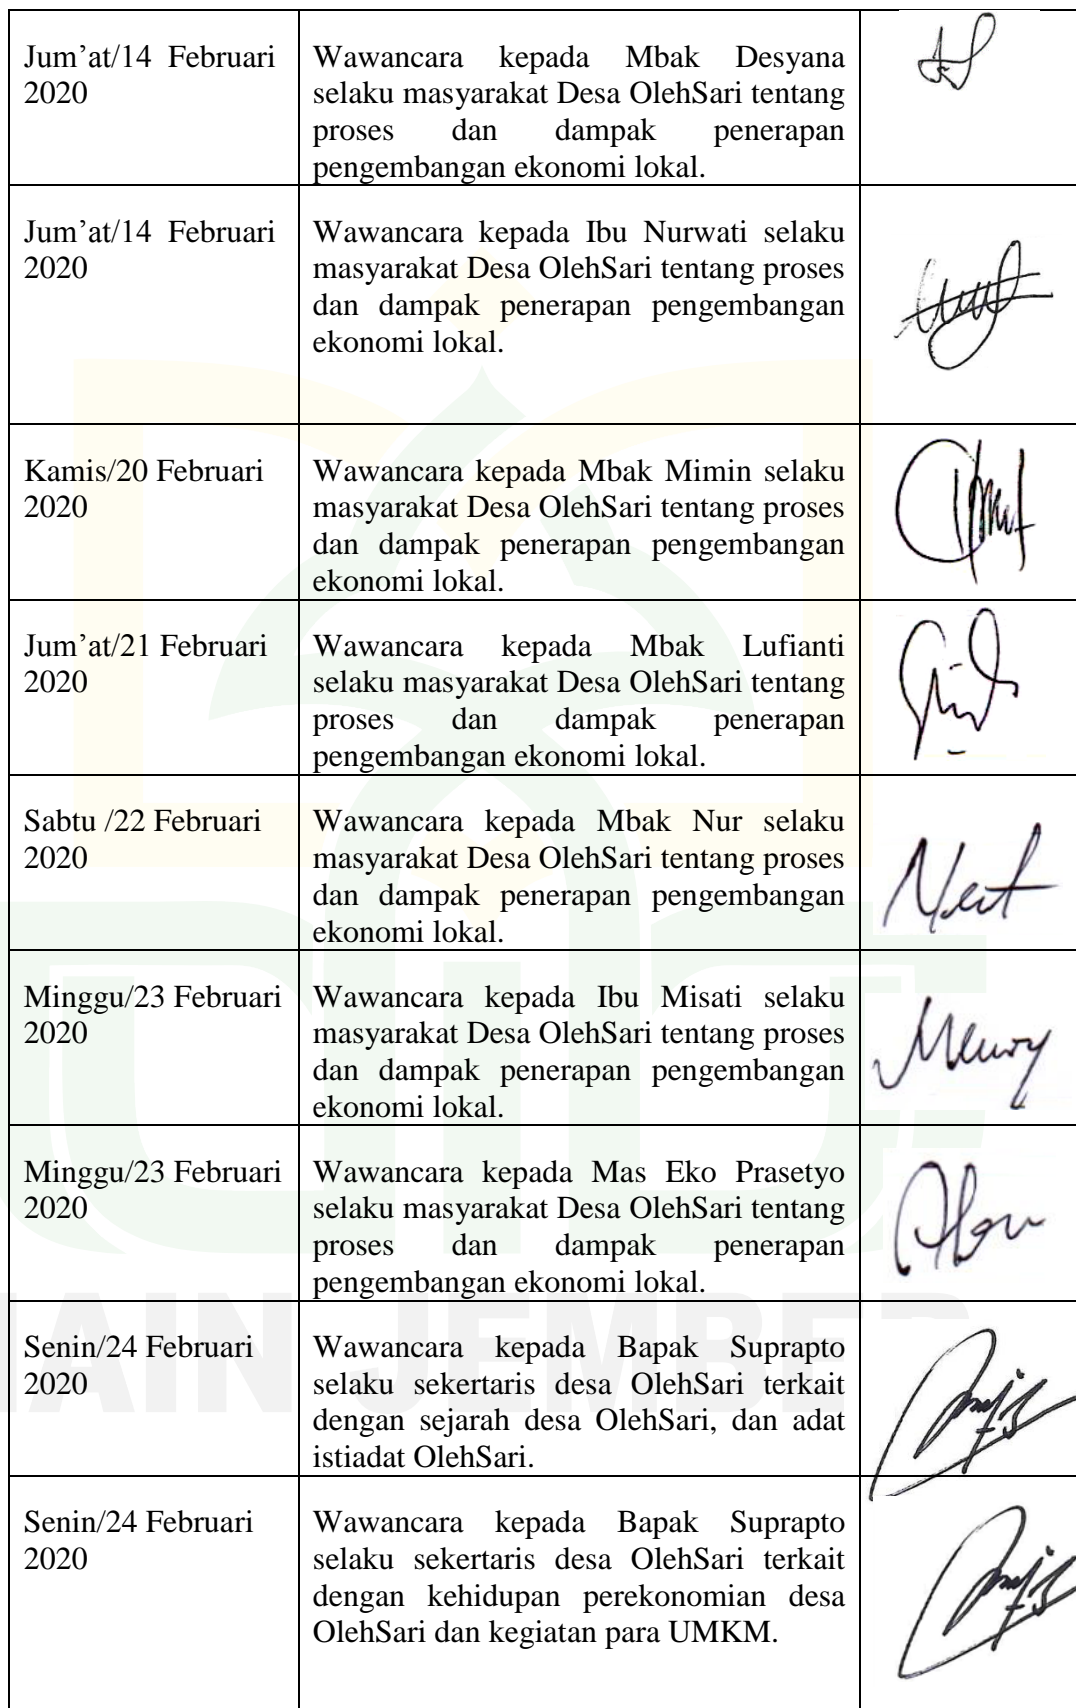 Jum’at/14 Februari
2020
Wawancara kepada Mbak Desyana
selaku masyarakat Desa OlehSari tentang
proses dan dampak penerapan
pengembangan ekonomi lokal.
Jum’at/14 Februari
2020
Wawancara kepada Ibu Nurwati selaku
masyarakat Desa OlehSari tentang proses
dan dampak penerapan pengembangan
ekonomi lokal.
Kamis/20 Februari
2020
Wawancara kepada Mbak Mimin selaku
masyarakat Desa OlehSari tentang proses
dan dampak penerapan pengembangan
ekonomi lokal.
Jum’at/21 Februari
2020
Wawancara kepada Mbak Lufianti
selaku masyarakat Desa OlehSari tentang
proses dan dampak penerapan
pengembangan ekonomi lokal.
Sabtu /22 Februari
2020
Wawancara kepada Mbak Nur selaku
masyarakat Desa OlehSari tentang proses
dan dampak penerapan pengembangan
ekonomi lokal.
Minggu/23 Februari
2020
Wawancara kepada Ibu Misati selaku
masyarakat Desa OlehSari tentang proses
dan dampak penerapan pengembangan
ekonomi lokal.
Minggu/23 Februari
2020
Wawancara kepada Mas Eko Prasetyo
selaku masyarakat Desa OlehSari tentang
proses dan dampak penerapan
pengembangan ekonomi lokal.
IAIN JEMBER
Senin/24 Februari
2020
Wawancara kepada Bapak Suprapto
selaku sekertaris desa OlehSari terkait
dengan sejarah desa OlehSari, dan adat
istiadat OlehSari.
Senin/24 Februari
2020
Wawancara kepada Bapak Suprapto
selaku sekertaris desa OlehSari terkait
dengan kehidupan perekonomian desa
OlehSari dan kegiatan para UMKM.